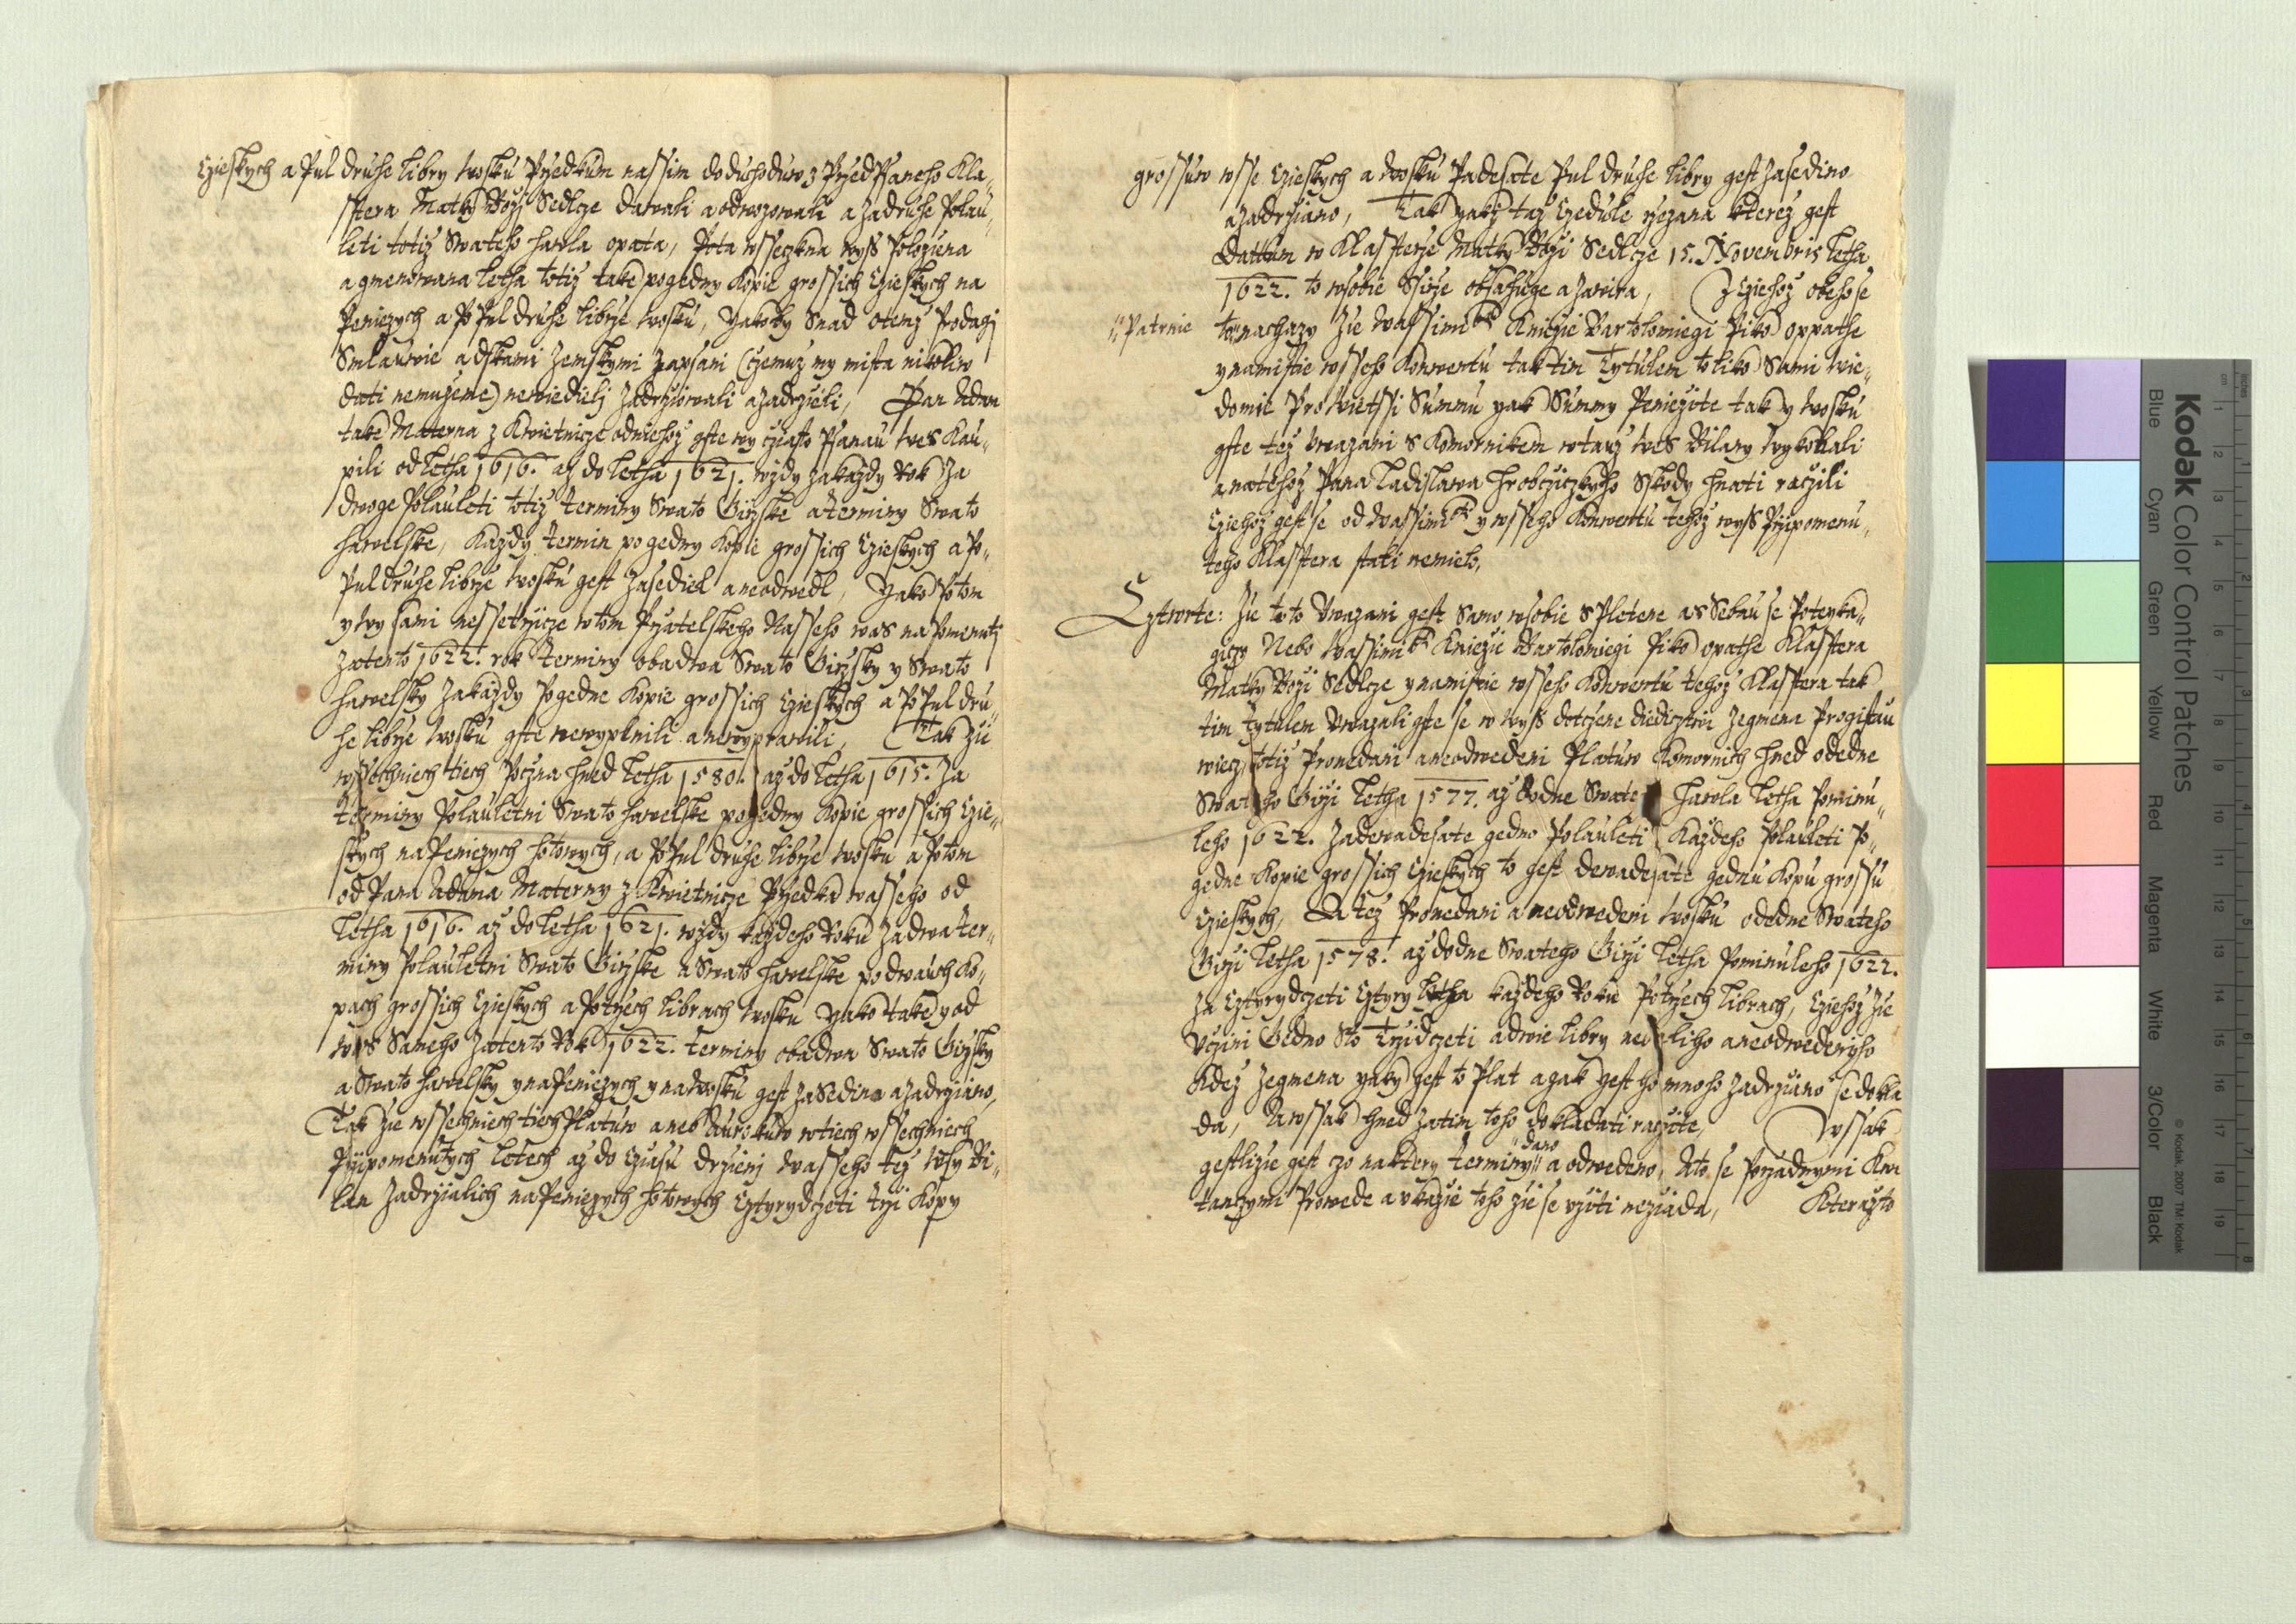 Czieskych a Pul druhe libry wosku Przedkum nassim do duchoduw z Przedpsaneho Kla„
sstera Matky Boži Sedlcze dawali a odwozowali a za druhe Polau„
leti totiž Swateho hawla opata, Pota wsseczkna wyss Položena
a gmenowana letha totiž take po gedny Kopie grossich Czieskych na
Peniezych a Po Pul druhe librže wosku, Yakoby Snad o temž Prodagi
Smlauwie a dskami zemskymi zapsani (czemuž my mista nikoliw
dati nemužeme) newiedieli zadržiowali a zadrželi, Pan Adam
take Materna z Kwietnicze od niehož gste wy cziasto Psanau wes Kau„
pili od letha 1616. až do letha 1621. wždy za každy Rok za
dwoge Polauleti totiž terminy Swato Giržske a terminy Swato
hawelske, Každy termin po gedny Kopie grossich Czieskych a Po„
Pul druhe librže wosku gest zasediel a neodwedl, Yako Potom
y wy sami nessetržicze w tom Przatelskeho Nasseho was naPomenuti
za tento 1622. rok terminy obadwa Swato Giržsky y Swato
hawelsky za každy Po gedne Kopie grossich Czieskych a Po Pul dru„
he librže wosku gste newyplnili a newyprawili, Tak žie
wssechniech tiech Poczna hned letha 1580. až do letha 1615. za
terminy Polauletni Swato hawelske po gedny Kopie grossich Czie„
skych na Peniezych hotowych, a Po Pul druhe librže wosku a Potom
od Pana Adama Materny z Kwietnicze Przedka wasseho od
letha 1616. až do letha 1621. wždy každeho Roku za dwa ter„
miny Polauletni Swato Giržske a Swato hawelske po dwauch Ko„
pach grossich Czieskych a Po trzech librach wosku Yako take y od
was Sameho za tento Rok 1622. terminy obadwa Swato Giržsky
a Swato hawelsky y na Peniezych y na wosku gest zaSedino a zadržiano,
Tak žie wssechniech tiech Platuw aneb Aurokuw w tiech wssechniech
Przipomenutych letech až do Cziasu drženi wasseho též wsy Bi„
lan zadržialich na Peniezych hotowych Cztyrydczeti trži Kopy
grossuw wsse Czieskych a wosku Padesate Pul druhe libry gest zasedino
a zadržiano, Tak yakž taž Czedule rzezana kterež gest
Dattum w Klassterze Matky Boži Sedlcze 15. Novembris letha
1622. to w sobie Ssirže obsahuge a zawira, Z Cziehož obeho se
„Patrnie to nachazy žie wassimti Kniežie Bartolomiegi Piko oppathe
y namistie wsseho Konwentu tak tim Tytulem toliko Sami wie„
domie Pro wietssi Summu yak Summy Peniežite tak y wosku
gste též Uwazani s Komornikem w tauž wes Bilany wykonali
a na tehož Pana Ladislawa Hrobcziczkyho Sskody hnati raczili
Cziehož gest se od wassimti y wsseho Konwentu tehož wyss Przipomenu„
teho Klasstera stati nemielo.
Cztwrte: Žie toto Uwazani gest Samo w sobie Spletene a s Sebau se Poteyka„
gicze Nebo wassimti Kniežie Bartolomiegi Piko opathe Klasstera
Matky Boži Sedlcze y namistie wsseho Konwentu tehož Klasstera tak
tim tytulem Uwazali gste se w wyss dotczene diedicztwi zegmena Pro gistau
wiecz, totiž Pro nedani a neodwedeni Platuw Komornich hned ode dne
Swateho Girži letha 1577. až do dne Swateho hawla letha Pominu„
leho 1622. za dewadesate gedno Polauleti každeho Polauleti Po„
gedne Kopie grossich Czieskych to gest dewadesate gednu Kopu grossu
Czieskych, A též Pro nedani a neodwedeni wosku ode dne Swateho
Girži letha 1578. až do dne Swateho Girži letha Pominuleho 1622.
za Cztyrydczeti Cztyry letha každeho Roku Po trzech librach, Cziehož žie
Uczini Gedno Sto Tržidczeti a dwie libry a neodwedenyho
Kdež zegmena yaky gest to Plat a gak gest ho mnoho zadržiano se dokla
da, A wssak hned zatim toho dokladati raczite, Wssak
gestližie gest czo na ktery terminy „dano a odwedeno, Ato se Porzadnymi Kwi
tanczymi Prowede a ukažie toho žie se užiti nežiada, Kteražto